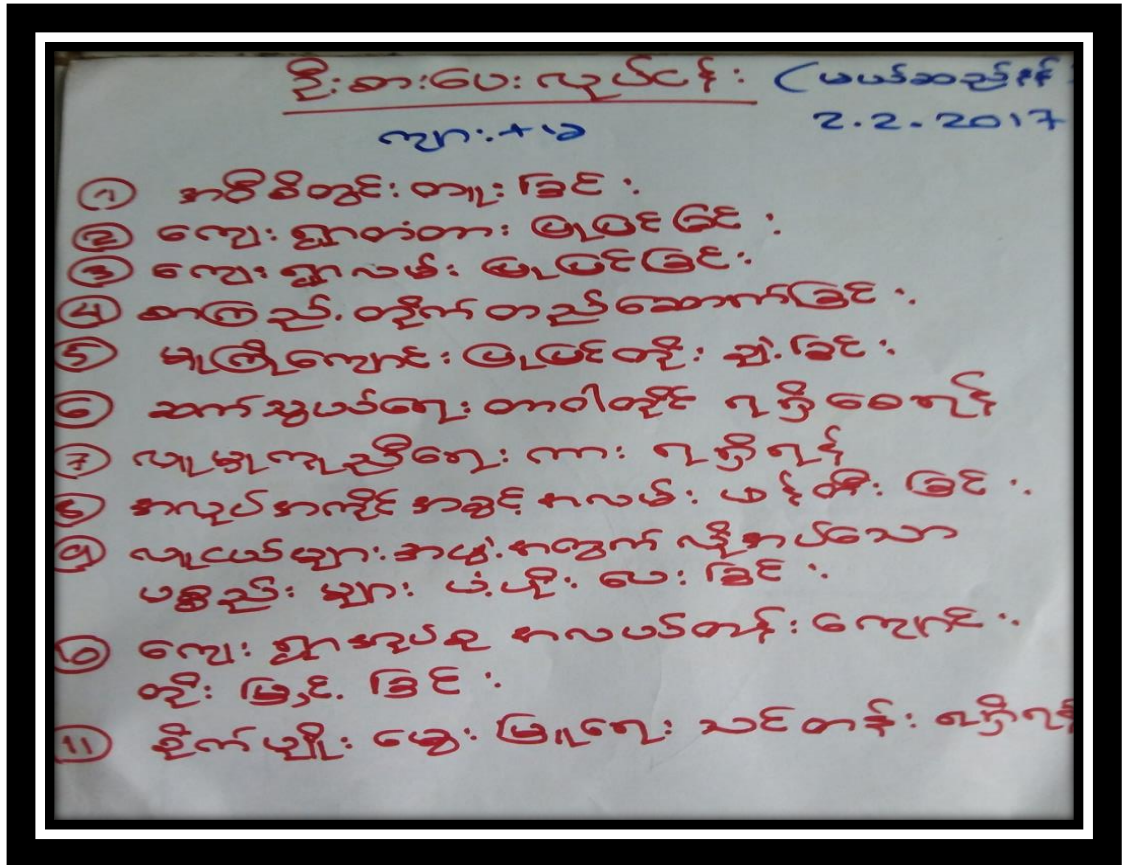 ဦးစားပေးလုပ်ငန်း (ဖယ်ဆည်ဇုန်
ကျား + မ 2.2.2017
① အဝီစိတွင်းတူးခြင်း
② ကျေးရွာတံတားပြုပြင်ခြင်း
③ ကျေးရွာလမ်းပြုပြင်ခြင်း
④ စာကြည့်တိုက်တည်ဆောက်ခြင်း
⑤ မူကြိုကျောင်းပြုပြင်တိုးချဲ့ခြင်း
⑥ ဆက်သွယ်ရေးတာဝါတိုင် ရရှိစေရန်
⑦ လူမှုကူညီရေးကား ရရှိရန်
⑧ အလုပ်အကိုင်အခွင့်အလမ်းဖန်တီးခြင်း
⑨ လူငယ်များအဖွဲ့အတွက် လိုအပ်သော
ပစ္စည်းများ ပံ့ပိုးပေးခြင်း
⑩ ကျေးရွာအုပ်စု အလယ်တန်းကျောင်း
တိုးမြှင့်ခြင်း
⑪ စိုက်ပျိုးမွေးမြူရေးသင်တန်းရရှိရန်